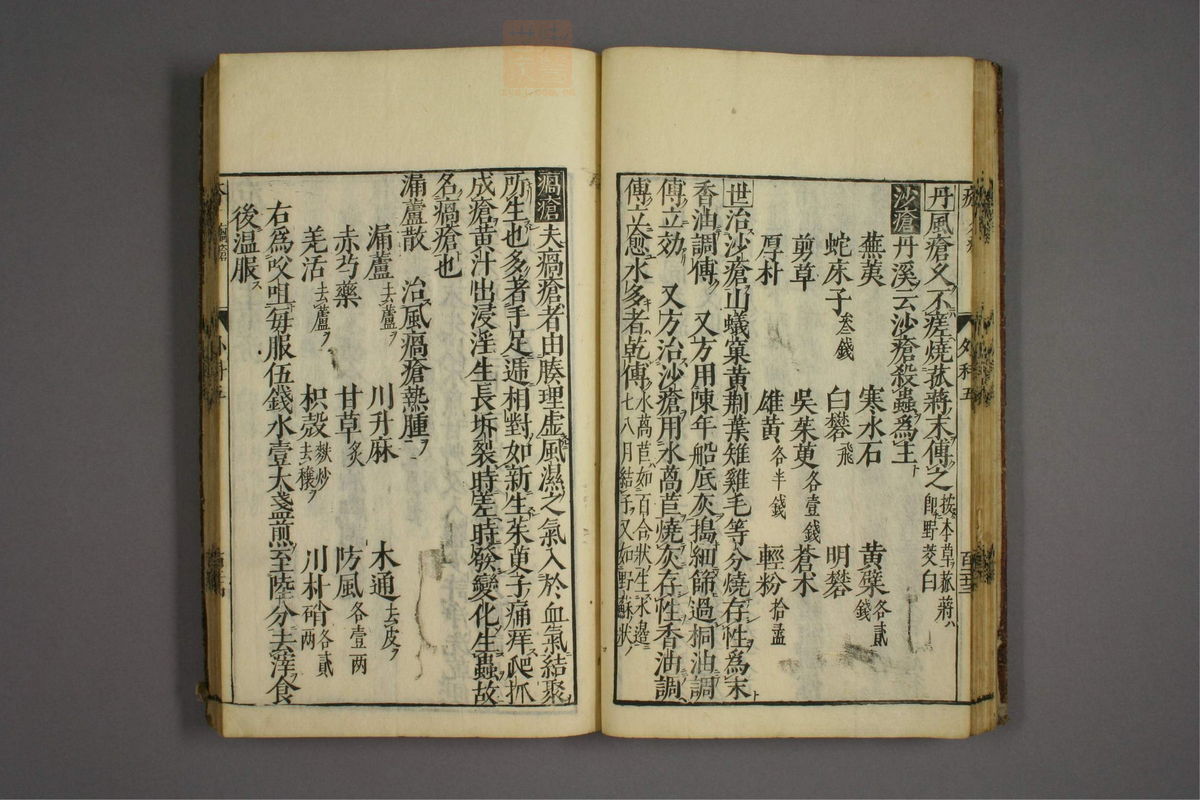 外科五
丹風瘡久不瘥燒菰蔣末傅之 按本草菰蔣ハ即野茭白
沙瘡 丹溪云沙瘡殺蟲爲主ト
蕪荑 寒水石 黄蘗各貳錢
蛇床子叁錢 白礬飛 明礬
剪草 吳茱萸各壹錢 蒼朮
厚朴 雄黄各半錢 輕粉拾盝
世治沙瘡山蟻窠黄荆葉雉雞毛等分燒存性爲末ト
香油調傅 又方用陳年船底灰搗細篩過桐油調
傅立効 又方治沙瘡用水萵苣燒灰存性香油調
傅立愈水多者乾傅 水萵苣ハ如百合狀生水邊ニ七八月結子ヲ又如野蘇狀ノ
瘑瘡 夫瘑瘡者由腠理虛風濕之氣入於血氣結聚
所生也多者手足遞相對如新生茱萸子痛痒爬抓
成瘡黄汁出浸淫生長坼裂時瘥時發變化生蟲故
名瘑瘡也
漏蘆散 治風瘑瘡熱腫ヲ
漏蘆去蘆ヲ 川升麻 木通去皮ヲ
赤芍藥 甘草炙 防風各壹兩
羌活去蘆ヲ 枳殼麩炒去穰ヲ 川朴硝各貳兩
右爲㕮咀毎服伍錢水壹大盞煎至陸分去滓食
後温服ス